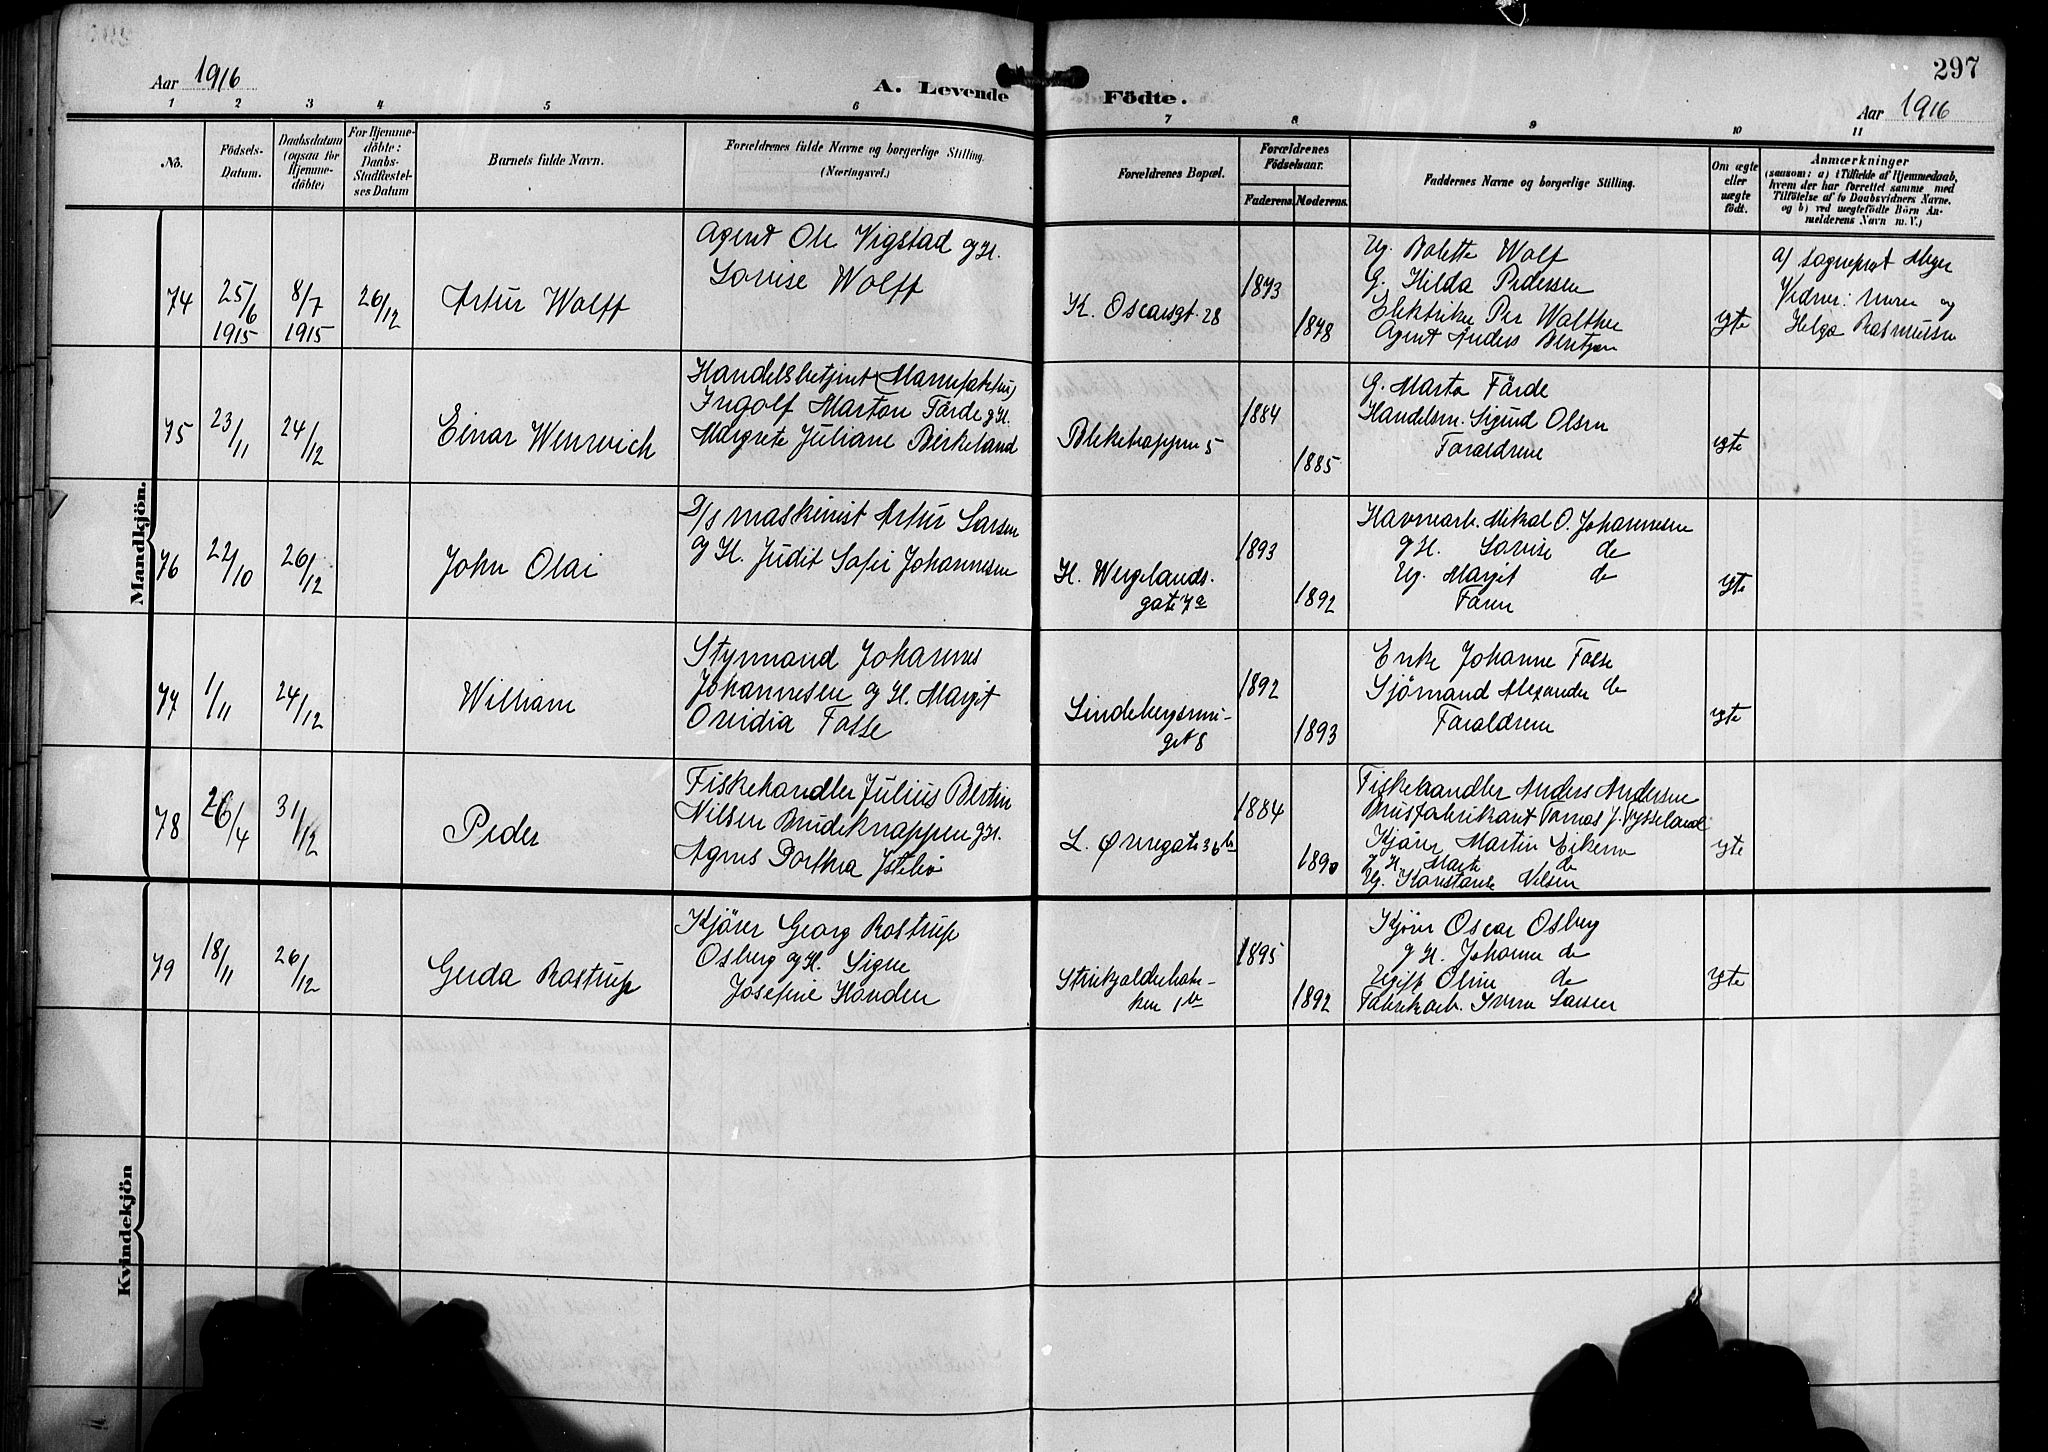 297
Aar 1916
A. Levende Födte.
Aar 1916
1 2 3 4 5 6 7 8 9 10 11
No.
Födsels-
Datum.
Daabsdatum
(ogsaa for
Hjemme-
döbte)
For Hjemme-
döbte:
Daabs-
Stadfæstel-
ses Datum
Barnets fulde Navn.
Forældrenes fulde Navne og borgerlige Stilling.
(Næringsvei.)
Forældrenes Bopæl.
Forældrenes
Födselsaar.
Faderens.
Moderens.
Faddernes Navne og borgerlige Stilling.
Om ægte
eller
uægte
födt.
Anmærkninger
(saasom: a) i Tilfælde af Hjemmedaab,
hvem der har forrettet samme med
Tilföielse af to Daabsvidners Navne.
og b) ved uægtefödte Börn An-
melderens Navn m. V.)
Mandkjön.
74
25/6
1915
8/7
1915
26/12
Artur Wolff
Agent Ole Vigstad og H.
Lovise Wolff
K. Oscarsgt. 28
1873
1878
Ug. Bolette Wolf
G. Hilda Pedersen
Elektriker Per Walther
Agent Anders Berntzen
ægte
a) Sogneprest Meyer
Vidner: moren og
Helga Rasmussen
75
23/11
24/12
Einar Wenwich
Handelsbetjent (Manufaktur)
Ingolf Marton Färde og H.
Margrete Juliane Birkeland
Bleketrappen 5
1884
1885
G. Marta Färde
Handelsm. Sigurd Olsen
Forældrene
ægte
76
22/10
26/12
John Olai
D/s maskinist Artur Larsen
og H. Judit Sofie Johannesen
H. Wergelands-
gate 7a
1893
1892
Havnearb. Mikal O. Johannesen
og H. Lovise do
Ug. Margit do
Faren
ægte
77
1/11
24/12
William
Styrmand Johannes
Johannesen og H. Margit
Ovidia Fosse
Lindebergsmu-
get 8
1892
1893
Enke Johanne Fosse
Sjömand Alexander do
Forældrene
ægte
78
26/4
31/12
Peder
Fiskehandler Julius Bertin
Nilsen Brudeknappen og H.
Agnes Dorthea
L. Øvregate 36b
1884
1890
Fiskehandler Anders Andersen
Brusfabrikant Tomas J. Tysseland
Kjörer Martin Eikemo
og H. Marte do
Ug. Konstanse Nilsen
ægte
Kvindekjön
79
18/11
26/12
Gerda Rostrup
Kjörer Georg Rostrup
Osberg og H. Signe
Josefine Handen
1b
1895
1892
Kjörer Oscar Osberg
og H. Johanne do
Ugift Oline do
Fabrikarb. Iver Larsen
ægte